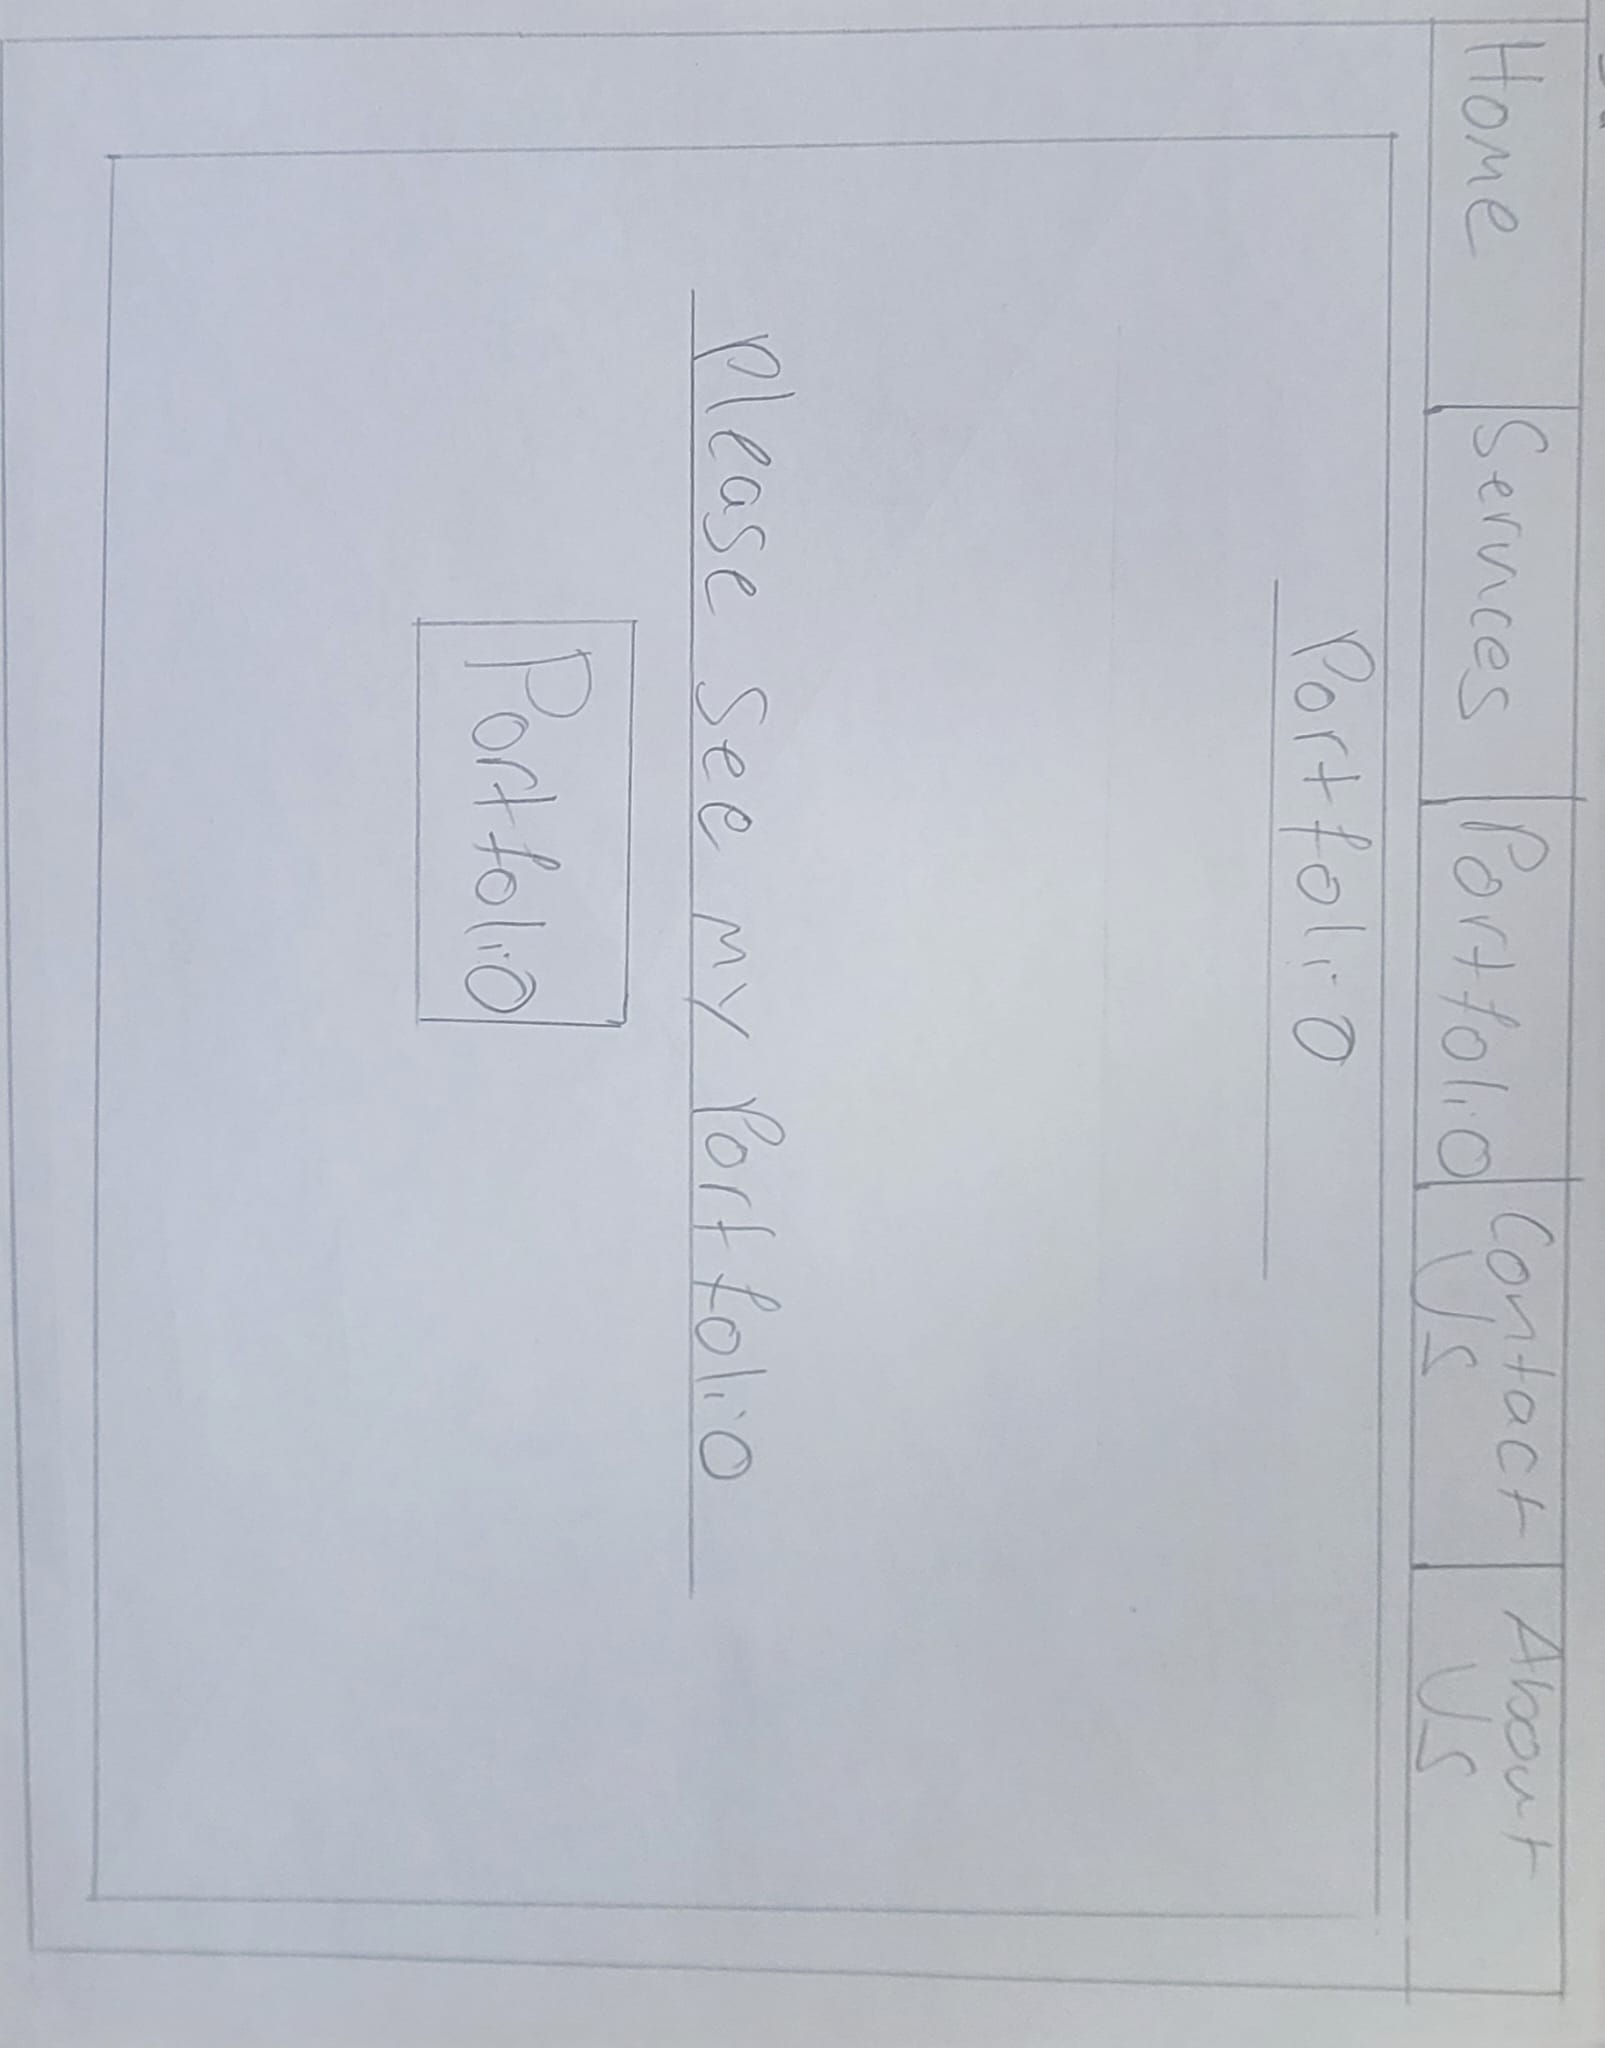 Home
Services
Portfolio
Contact
Us
About
Us
Portfolio
Please see my Portfolio
Portfolio